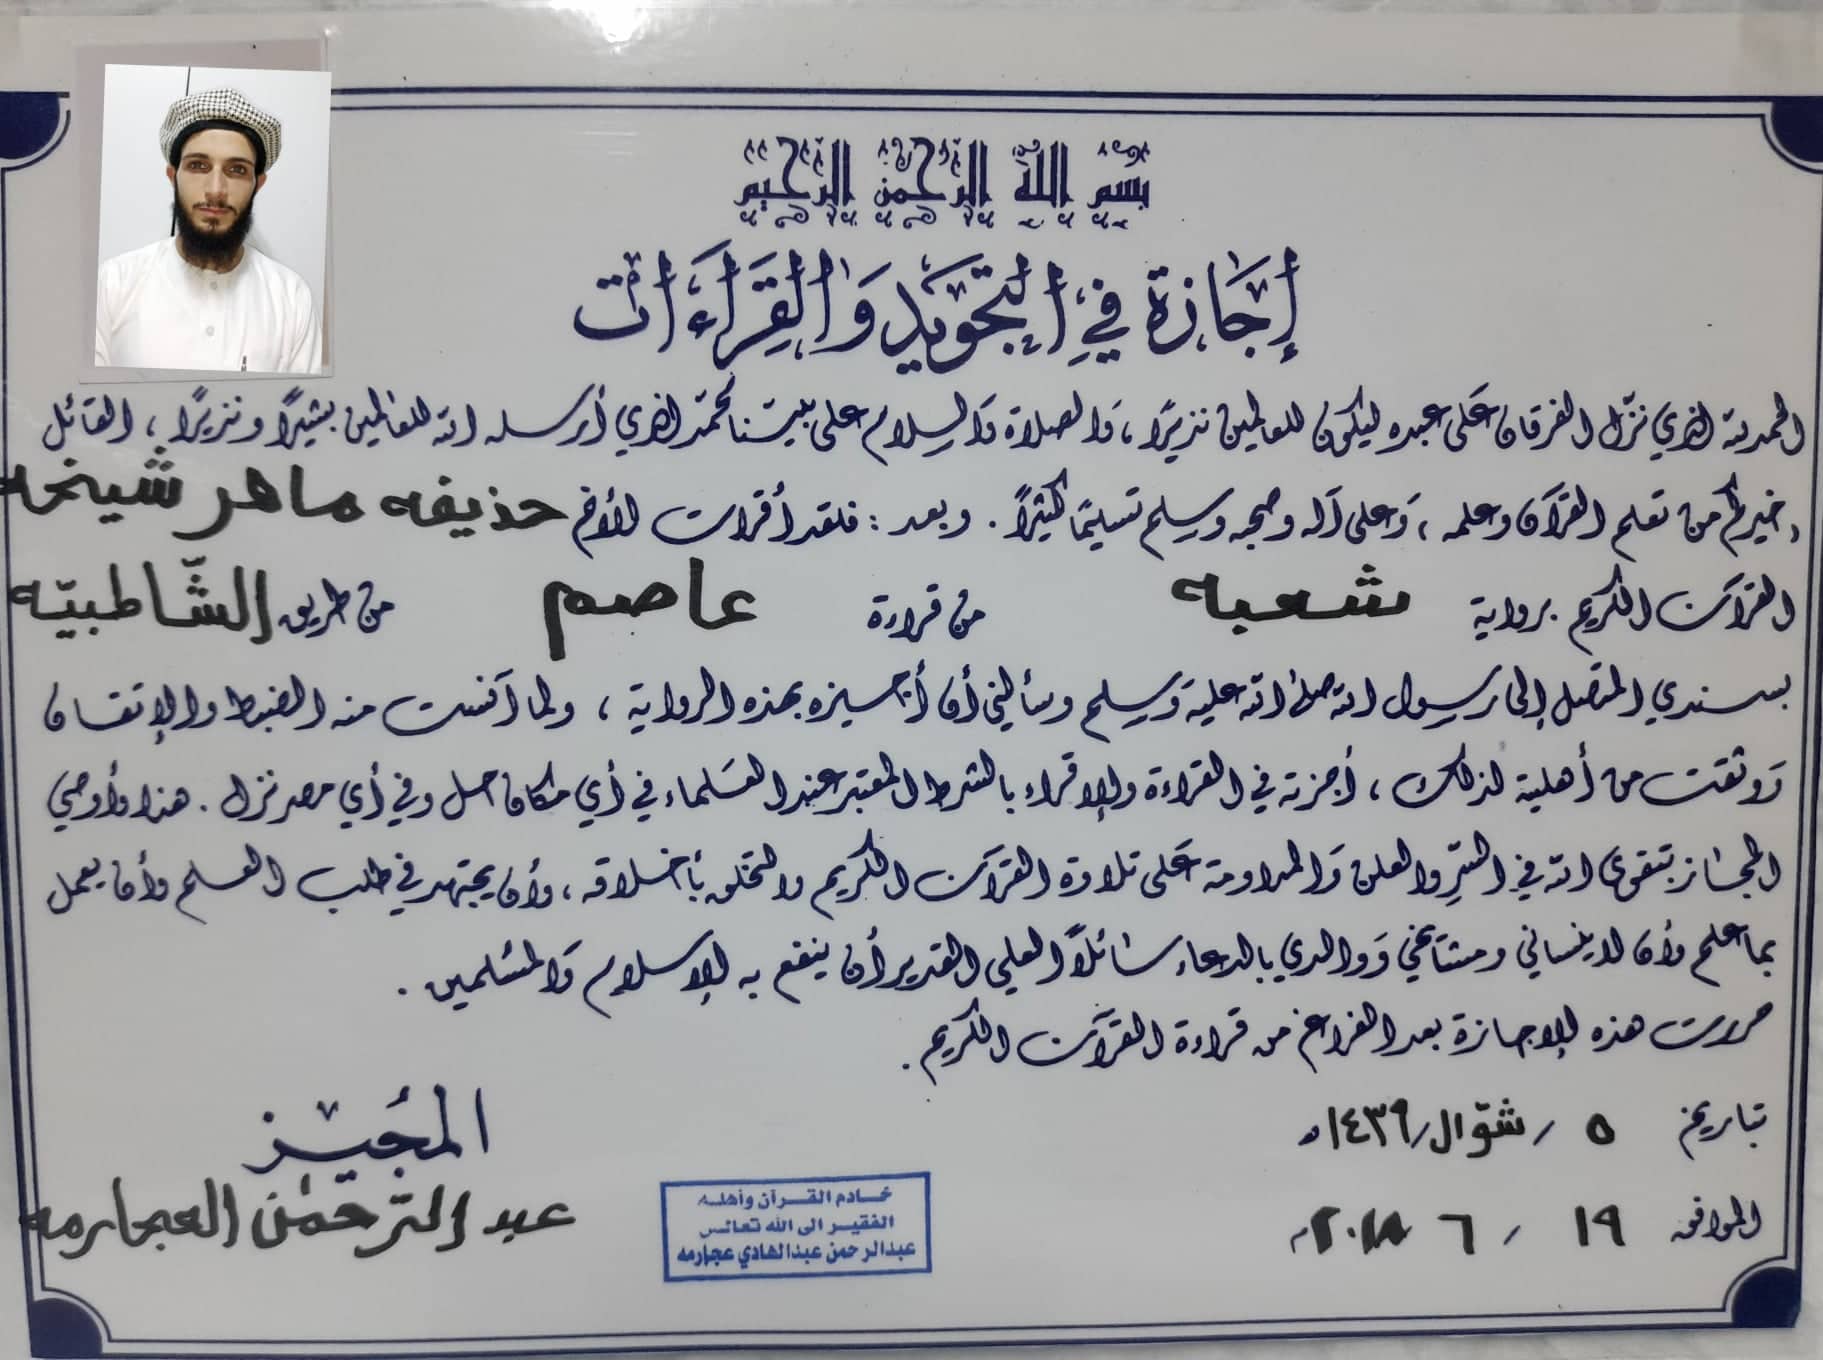 بسم الله الرحمن الرحيم
إِجَازة في التجويد وَالقِرَاءَات
الحمد لله الذي نزّل الفرقان عَلى عبده ليكون للعالمين نذيرًا ، وَالصلاة وَالسلام على نبيّنا محمّد الذي أرسله الله للعَالمين بشيرًا ونذيرًا ، القائل
، خيركم من تعلم القرآن وعلمه ، وَعلى آله وصحبه وسلم تسليمًا كثيرًا . وبعد : فلقد أقرأت الأخ حذيفه ماهر شيخه
القرآن الكريم برواية شعبه من قراءة عاصم من طريق الشّاطبيّه
بسندي المتصل إلى رسول الله صلى الله عليه وَسلم وسألني أن أجيزه بهذه الرواية ، ولما آنست منه الضبط والإتقان
وَثقت من أهلية لذلك ، أجزته في القراءة والإقراء بالشرط المعتبر عند العلماء في أي مكان حل وفي أي مصر نزل . هذا وأوصي
المجاز بتقوى الله في السّر والعلن وَالمداومة عَلى تلاوة القرآن الكريم والتخلق بأخلاقه ، وأن يجتهد في طلب العلم وأن يعمل
بما علم وأن لا ينساني ومشايخي وَوالدي بالدعاء سائلاً العلي القدير أن ينفع به الإسلام وَالمسلمين .
حررت هذه الإجازة بعد الفراغ من قراءة القرآن الكريم .
بتاريخ ٥ / شوّال / ١٤٣٩ه
الموافق ١٩ / ٦ / ٢٠١٨م
المُجيز
عبد الرّحمٰن العجارمه
خادم القرآن وأهله
الفقير الى الله تعالى
عبدالرحمن عبدالهادي عجارمه